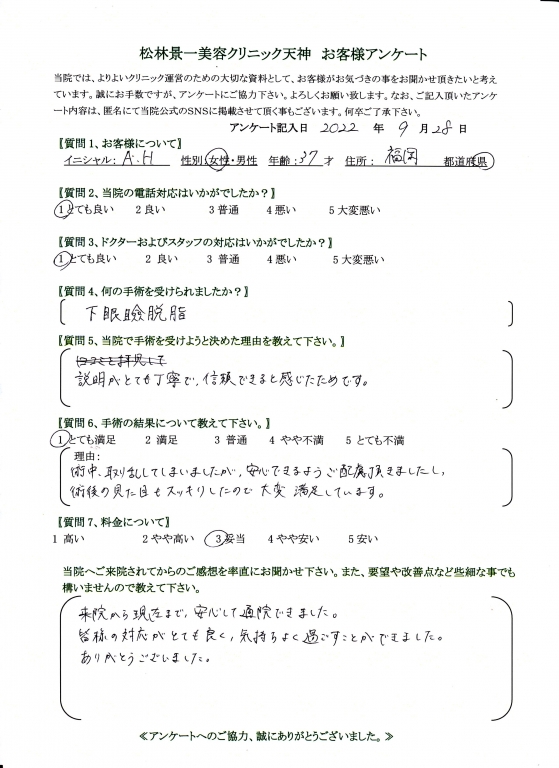 松林景一美容クリニック天神　お客様アンケート
当院では、よりよいクリニック運営のための大切な資料として、お客様がお気づきの事をお聞かせ頂きたいと考え
ています。誠にお手数ですが、アンケートにご協力下さい。よろしくお願い致します。なお、ご記入頂いたアンケ
ート内容は、匿名にて当院公式のSNSに掲載させて頂く事もございます。何卒ご了承下さい。
アンケート記入日　2022　年　9　月　28　日
【質問1、お客様について】
イニシャル：A.H　性別：女性・男性　年齢：37才　住所：　福岡　都道府県
【質問2、当院の電話対応はいかがでしたか？】
1とても良い　2良い　3普通　4悪い　5大変悪い
【質問3、ドクターおよびスタッフの対応はいかがでしたか？】
1とても良い　2 良い　3 普通　4悪い　5大変悪い
【質問4、何の手術を受けられましたか？】
下眼瞼脱脂
【質問5、当院で手術を受けようと決めた理由を教えて下さい。】
口コミを拝見して
説明がとても丁寧で、信頼できると感じたためです。
【質問6、手術の結果について教えて下さい。】
1とても満足　2 満足　3 普通　4 やや不満　5 とても不満
理由：
術中、取り乱してしまいましたが、安心できるようご配慮頂きましたし、
術後の見た目もスッキリしたので大変満足しています。
【質問7、料金について】
1 高い　2やや高い　3妥当　4やや安い　5安い
当院へご来院されてからのご感想を率直にお聞かせ下さい。また、要望や改善点など些細な事でも
構いませんので教えて下さい。
来院から現在まで、安心して通院できました。
皆様の対応がとても良く、気持ちよく過ごすことができました。
ありがとうございました。
≪アンケートへのご協力、誠にありがとうございました。≫